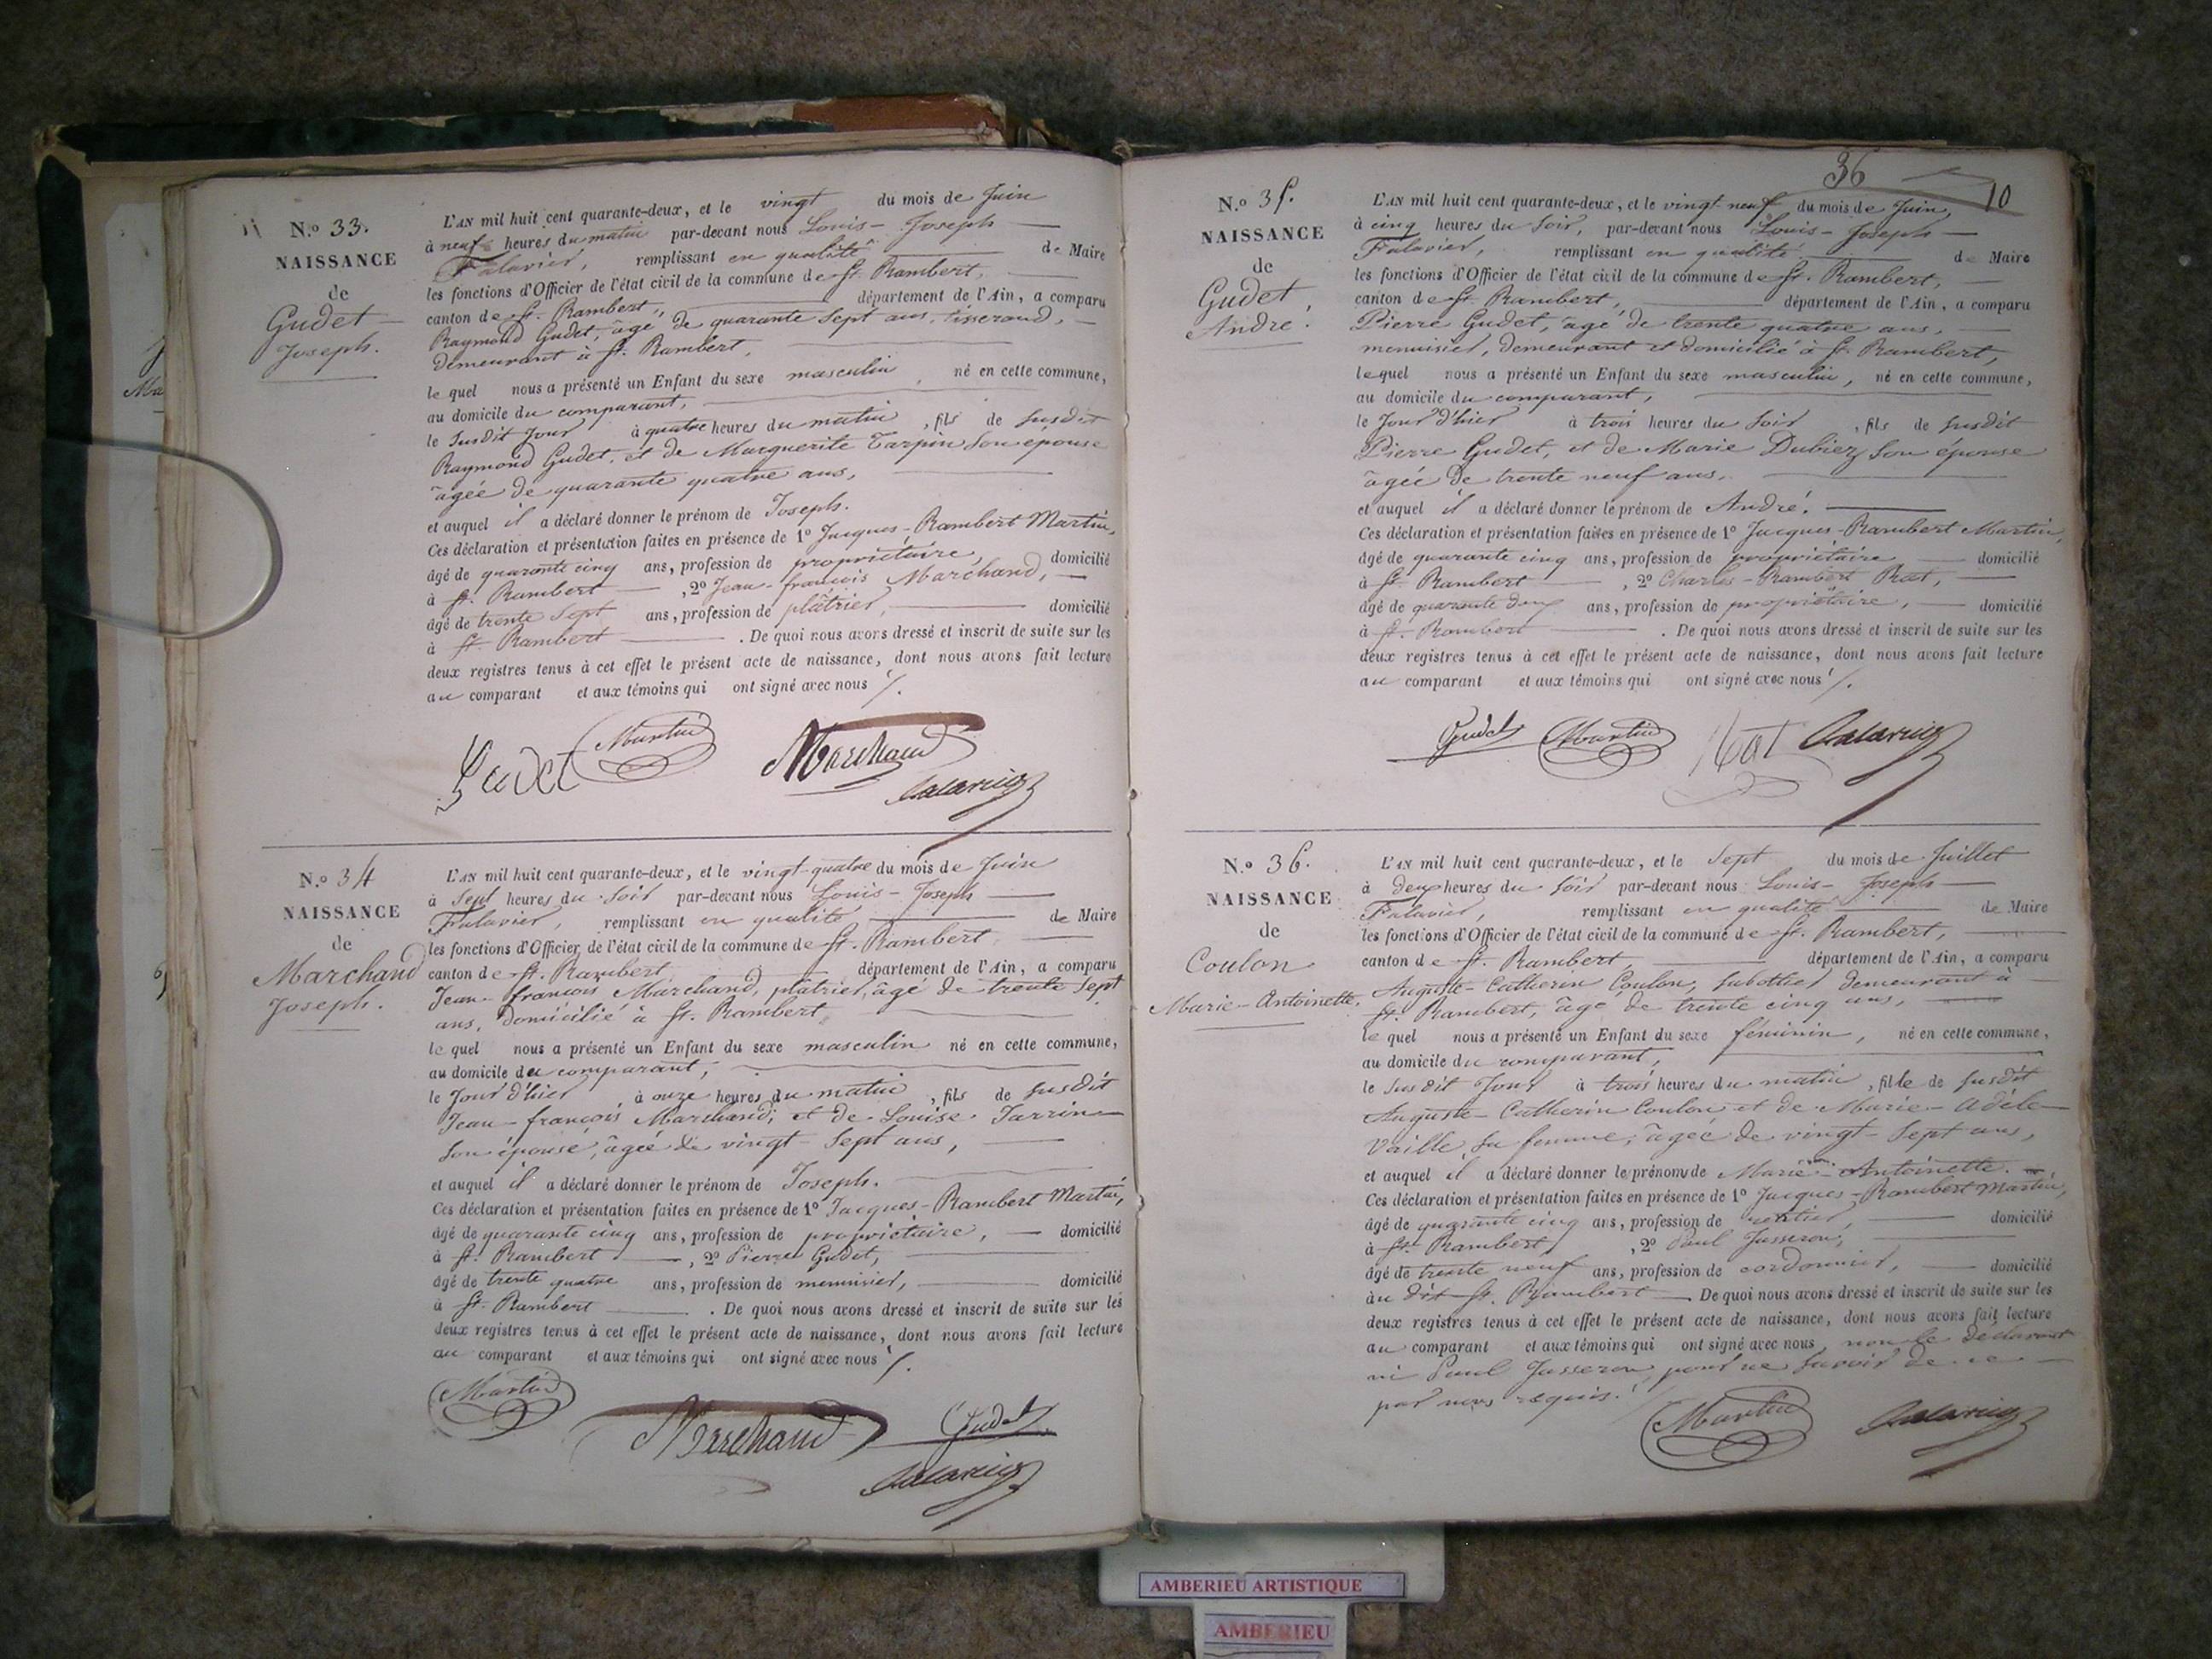 N.º 33.
NAISSANCE
de
Gudet
Joseph.
L'AN mil huit cent quarante-deux, et le vingt du mois de Juin
à neuf heures du matin par-devant nous Louis-Joseph
Falavier, remplissant en qualité de Maire
les fonctions d'Officier de l'état civil de la commune de St. Rambert,
canton de St. Rambert, département de l'Ain, a comparu
Raymond Gudet, âgé de quarante Sept ans, tisserand,
demeurant à St. Rambert,
le quel nous a présenté un Enfant du sexe masculin, né en cette commune,
au domicile du comparant,
le Susdit Jour à quatre heures du matin, fils de Susdit
Raymond Gudet, et de Marguerite Tarpin Son épouse
âgée de quarante quatre ans,
et auquel il a déclaré donner le prénom de Joseph.
Ces déclaration et présentation faites en présence de 1º Jacques-Rambert Martin,
âgé de quarante cinq ans, profession de propriétaire, domicilié
à St. Rambert, 2º Jean-françois Marchand,
âgé de trente Sept ans, profession de plâtrier, domicilié
à St. Rambert. De quoi nous avons dressé et inscrit de suite sur les
deux registres tenus à cet effet le présent acte de naissance, dont nous avons fait lecture
au comparant et aux témoins qui ont signé avec nous /.
Gudet Martin Marchand
Falavier
N.º 34
NAISSANCE
de
Marchand
Joseph.
L'AN mil huit cent quarante-deux, et le vingt-quatre du mois de Juin
à Sept heures du Soir par-devant nous Louis-Joseph
Falavier, remplissant en qualité de Maire
les fonctions d'Officier de l'état civil de la commune de St. Rambert,
canton de St. Rambert, département de l'Ain, a comparu
Jean-françois Marchand, plâtrier, âgé de trente Sept
ans, domicilié à St. Rambert,
le quel nous a présenté un Enfant du sexe masculin né en cette commune,
au domicile du comparant,
le Jour d'hier, à onze heures du matin, fils de Susdit
Jean-françois Marchand, et de Louise Tarrin
Son épouse, âgée de vingt-Sept ans,
et auquel il a déclaré donner le prénom de Joseph.
Ces déclaration et présentation faites en présence de 1º Jacques-Rambert Martin,
âgé de quarante cinq ans, profession de propriétaire, domicilié
à St. Rambert, 2º Pierre Gudet,
âgé de trente quatre ans, profession de menuisier, domicilié
à St. Rambert. De quoi nous avons dressé et inscrit de suite sur les
deux registres tenus à cet effet le présent acte de naissance, dont nous avons fait lecture
au comparant et aux témoins qui ont signé avec nous /.
Martin Marchand Gudet
Falavier
36
10
N.º 35.
NAISSANCE
de
Gudet,
André.
L'AN mil huit cent quarante-deux, et le vingt-neuf du mois de Juin,
à cinq heures du Soir, par-devant nous Louis-Joseph
Falavier, remplissant en qualité de Maire
les fonctions d'Officier de l'état civil de la commune de St. Rambert,
canton de St. Rambert, département de l'Ain, a comparu
Pierre Gudet, âgé de trente quatre ans,
menuisier, demeurant et domicilié à St. Rambert,
lequel nous a présenté un Enfant du sexe masculin, né en cette commune,
au domicile du comparant,
le Jour d'hier à trois heures du Soir, fils de Susdit
Pierre Gudet, et de Marie Dubiez Son épouse
âgée de trente neuf ans,
et auquel il a déclaré donner le prénom de André.
Ces déclaration et présentation faites en présence de 1º Jacques-Rambert Martin,
âgé de quarante cinq ans, profession de propriétaire domicilié
à St. Rambert, 2º Charles-Rambert Rat,
âgé de quarante deux ans, profession de propriétaire, domicilié
à St. Rambert. De quoi nous avons dressé et inscrit de suite sur les
deux registres tenus à cet effet le présent acte de naissance, dont nous avons fait lecture
au comparant et aux témoins qui ont signé avec nous /.
Gudet Martin Rat Falavier
N.º 36.
NAISSANCE
de
Coulon
Marie-Antoinette.
L'AN mil huit cent quarante-deux, et le Sept du mois de Juillet
à deux heures du Soir par-devant nous Louis-Joseph
Falavier, remplissant en qualité de Maire
les fonctions d'Officier de l'état civil de la commune de St. Rambert,
canton de St. Rambert, département de l'Ain, a comparu
Auguste-Catherin Coulon, Sabottier demeurant à
St. Rambert, âgé de trente cinq ans,
le quel nous a présenté un Enfant du sexe féminin, né en cette commune,
au domicile du comparant,
le Susdit Jour à trois heures du matin, fille de Susdit
Auguste-Catherin Coulon et de Marie-Adèle
Vaille, Sa femme, âgée de vingt-Sept ans,
et auquel il a déclaré donner le prénom de Marie-Antoinette.
Ces déclaration et présentation faites en présence de 1º Jacques-Rambert Martin,
âgé de quarante cinq ans, profession de rentier, domicilié
à St. Rambert, 2º Paul Jusseron,
âgé de trente neuf ans, profession de cordonnier, domicilié
au dit St. Rambert. De quoi nous avons dressé et inscrit de suite sur les
deux registres tenus à cet effet le présent acte de naissance, dont nous avons fait lecture
au comparant et aux témoins qui ont signé avec nous, non le déclarant
ni Paul Jusseron, pour ne Savoir de ce
par nous requis.
Martin Falavier
AMBERIEU ARTISTIQUE
AMBERIEU